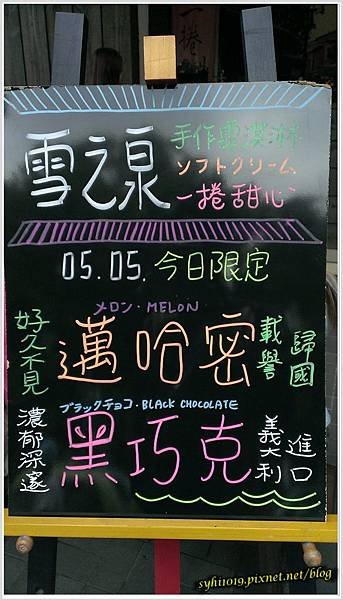 一捲
雪之泉
手作霜淇淋
ソフトクリーム
一捲甜心
05.05.今日限定
メロン・MELON
好久不見
邁哈密
載譽
歸國
ブラックチョコ・BLACK CHOCOLATE
濃郁深邃
黑巧克
義大利
進口
syhi1019.pixnet.net/blog